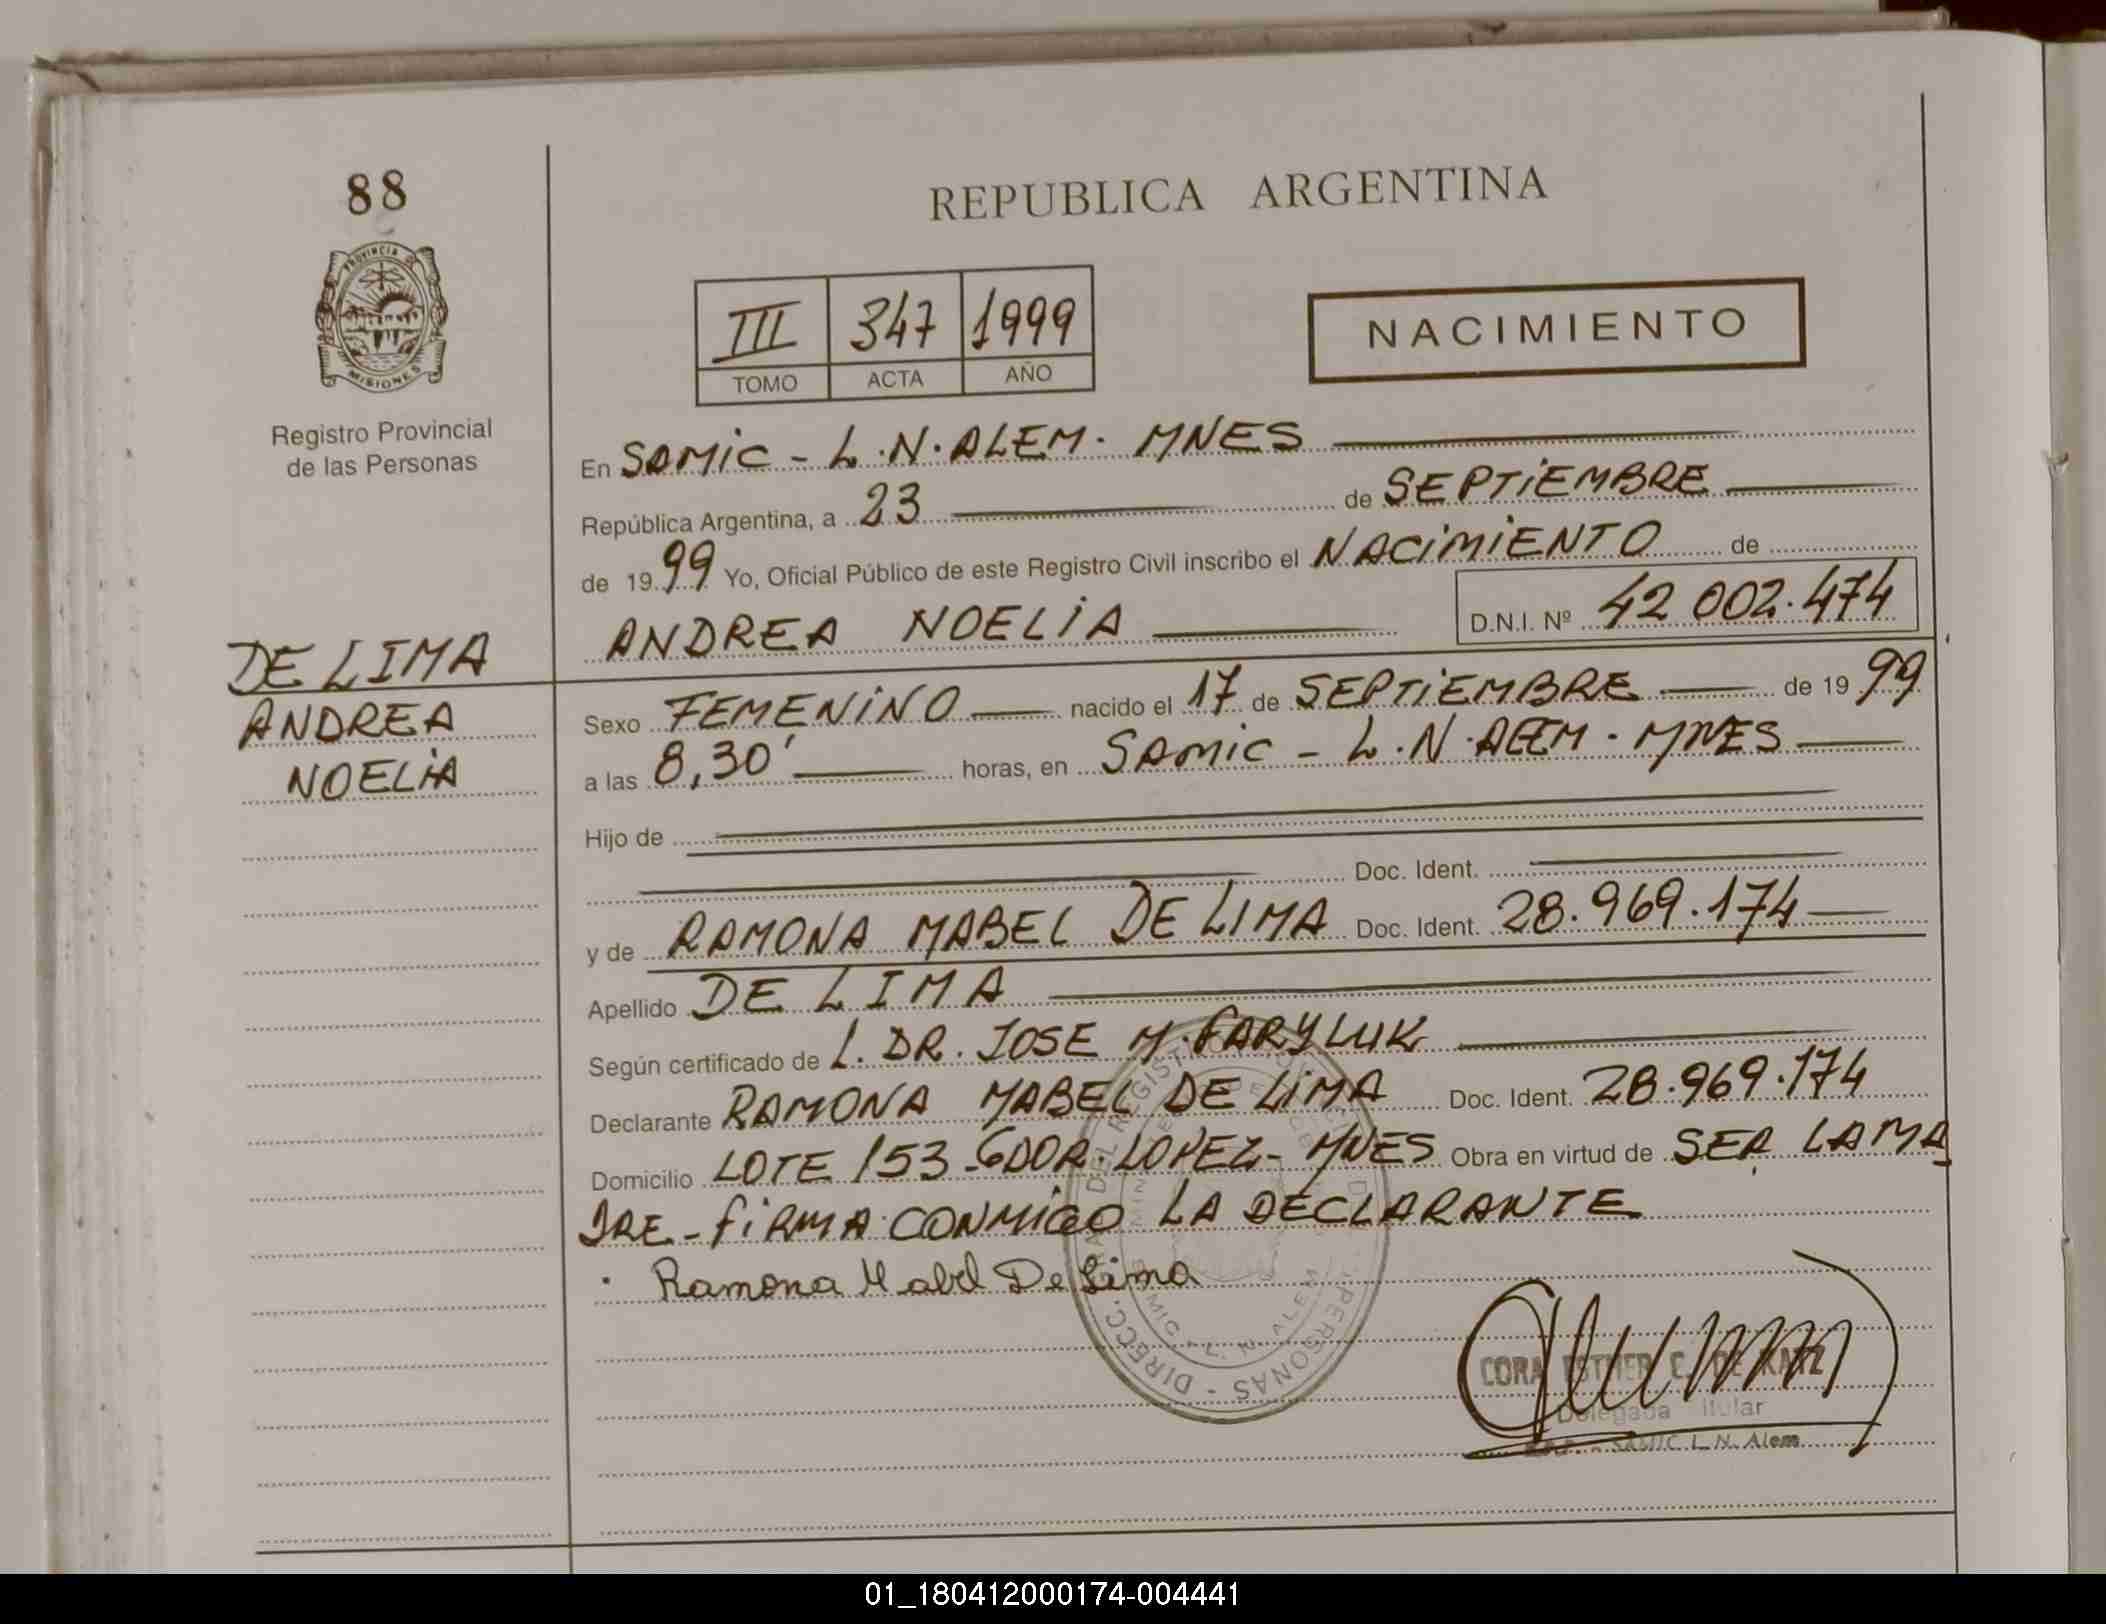 88
REPUBLICA ARGENTINA
PROVINCIA DE
MISIONES
Registro Provincial
de las Personas
III 347 1999
TOMO ACTA AÑO
NACIMIENTO
En SAMIC - L.N.ALEM. MNES
República Argentina, a 23 de SEPTIEMBRE
de 1999 Yo, Oficial Público de este Registro Civil inscribo el NACIMIENTO de
ANDREA NOELIA D.N.I. Nº 42 002.474
DE LIMA
ANDREA
NOELIA
Sexo FEMENINO nacido el 17 de SEPTIEMBRE de 1999
a las 8,30' horas, en SAMIC - L.N.ALEM. MNES
Hijo de
Doc. Ident.
y de RAMONA MABEL DE LIMA Doc. Ident. 28.969.174
Apellido DE LIMA
Según certificado de L. DR. JOSE M. FARYLUK
Declarante RAMONA MABEL DE LIMA Doc. Ident. 28.969.174
Domicilio LOTE 153-GDOR.LOPEZ- MNES Obra en virtud de SER LA MA
DRE - FIRMA CONMIGO LA DECLARANTE
Ramona Mabel De Lima
CORA ESTHER C. DE KATZ
Delegada Titular
SAMIC L. N. Alem
01_180412000174-004441